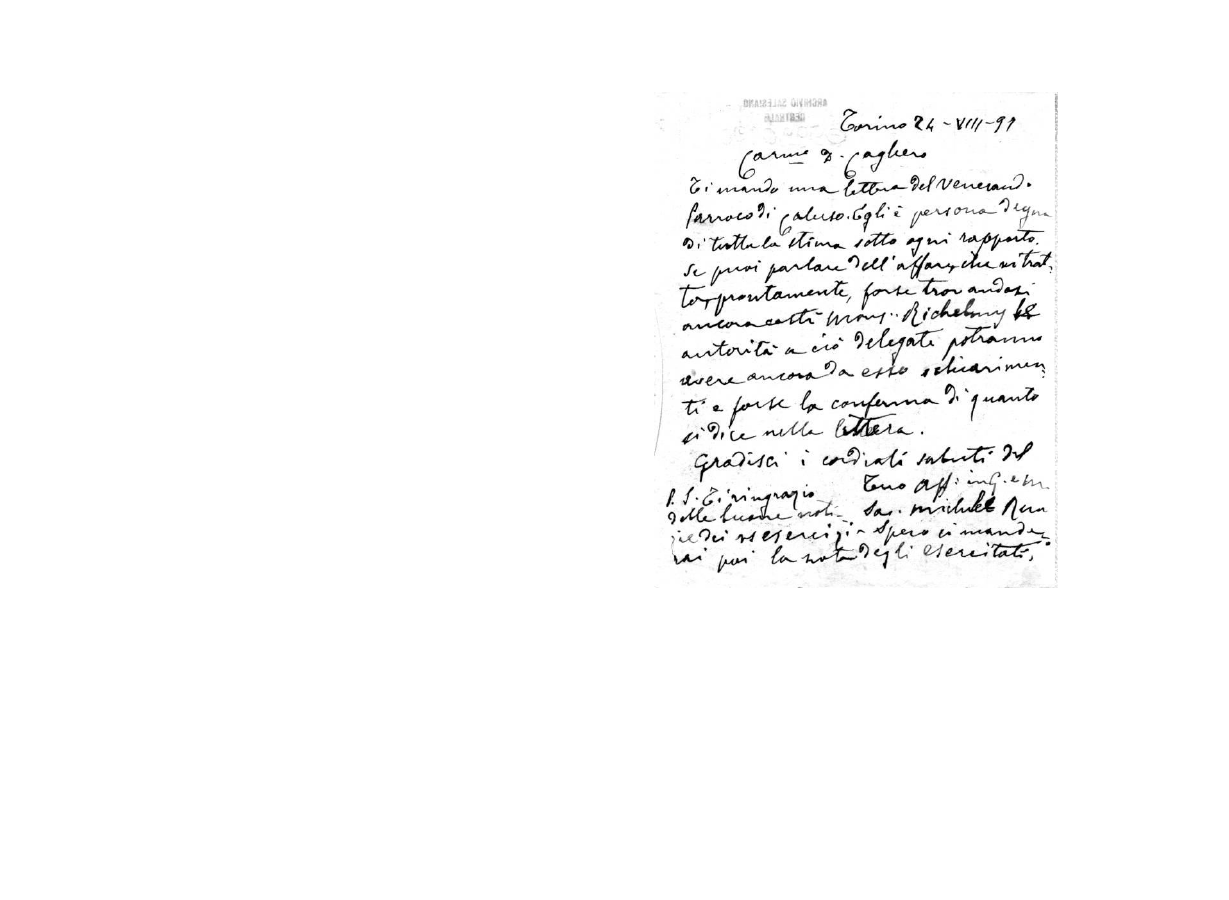 ARCHIVIO SALESIANO
CENTRALE
Torino 24-VIII-99
Carmo D. Cagliero
Ti mando una lettera del Venerando
Parroco di Caluso. Egli è persona degna
di tutta la stima sotto ogni rapporto.
Se puoi parlare dell'affare, che si trat-
ta, prontamente, forse trovandosi
ancora costì Mons. Richelmy le
autorità a ciò delegate potranno
avere ancora da esso schiarimen-
ti e forse la conferma di quanto
si dice nella lettera.
Gradisci i cordiali saluti del
Tuo aff. in G. e M.
Sac. Michele Rua
P.S. Ti ringrazio
delle buone noti-
zie dei ss esercizi - Spero ci mande-
rai poi la nota degli esercitati.